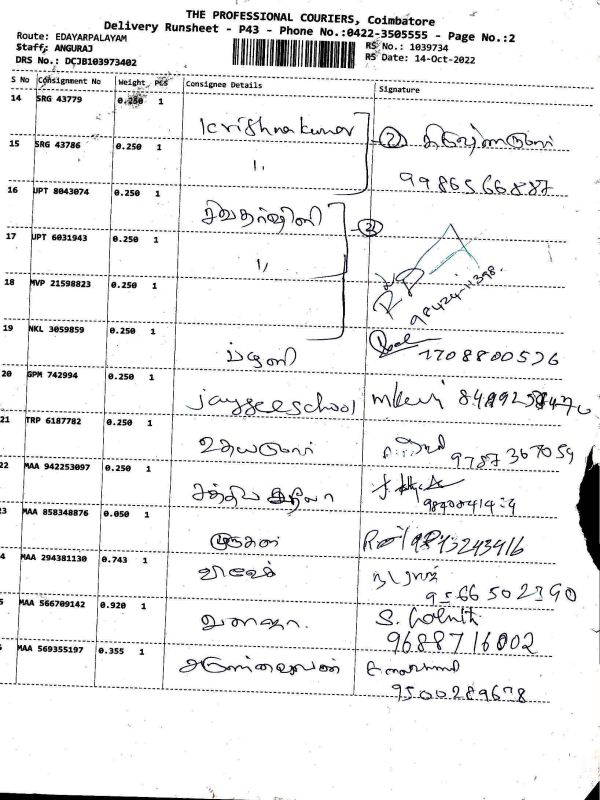 THE PROFESSIONAL COURIERS, Coimbatore
Delivery Runsheet - P43 - Phone No.:0422-3505555 - Page No.:2
Route: EDAYARPALAYAM
Staff: ANGURAJ
DRS No.: DCJB103973402
RS No.: 1039734
RS Date: 14-Oct-2022
S No Consignment No Weight Pcs Consignee Details Signature
14 SRG 43779 0.250 1
Krishnakumar
15 SRG 43786 0.250 1
(2)
9986566887
16 UPT 8043074 0.250 1
(2)
17 UPT 6031943 0.250 1
18 MVP 21598823 0.250 1
98424-11398.
19 NKL 3059859 0.250 1
1708800526
20 GPM 742994 0.250 1
jaygee school
21 TRP 6187782 0.250 1
உதயகுமார்
9787367059
22 MAA 942253097 0.250 1
3 MAA 858348876 0.050 1
முருகன் 9843243416
4 MAA 294381130 0.743 1
நடராஜ்
9566502390
5 MAA 566709142 0.920 1
வனஜா.
9688716002
MAA 569355197 0.355 1
9500289678